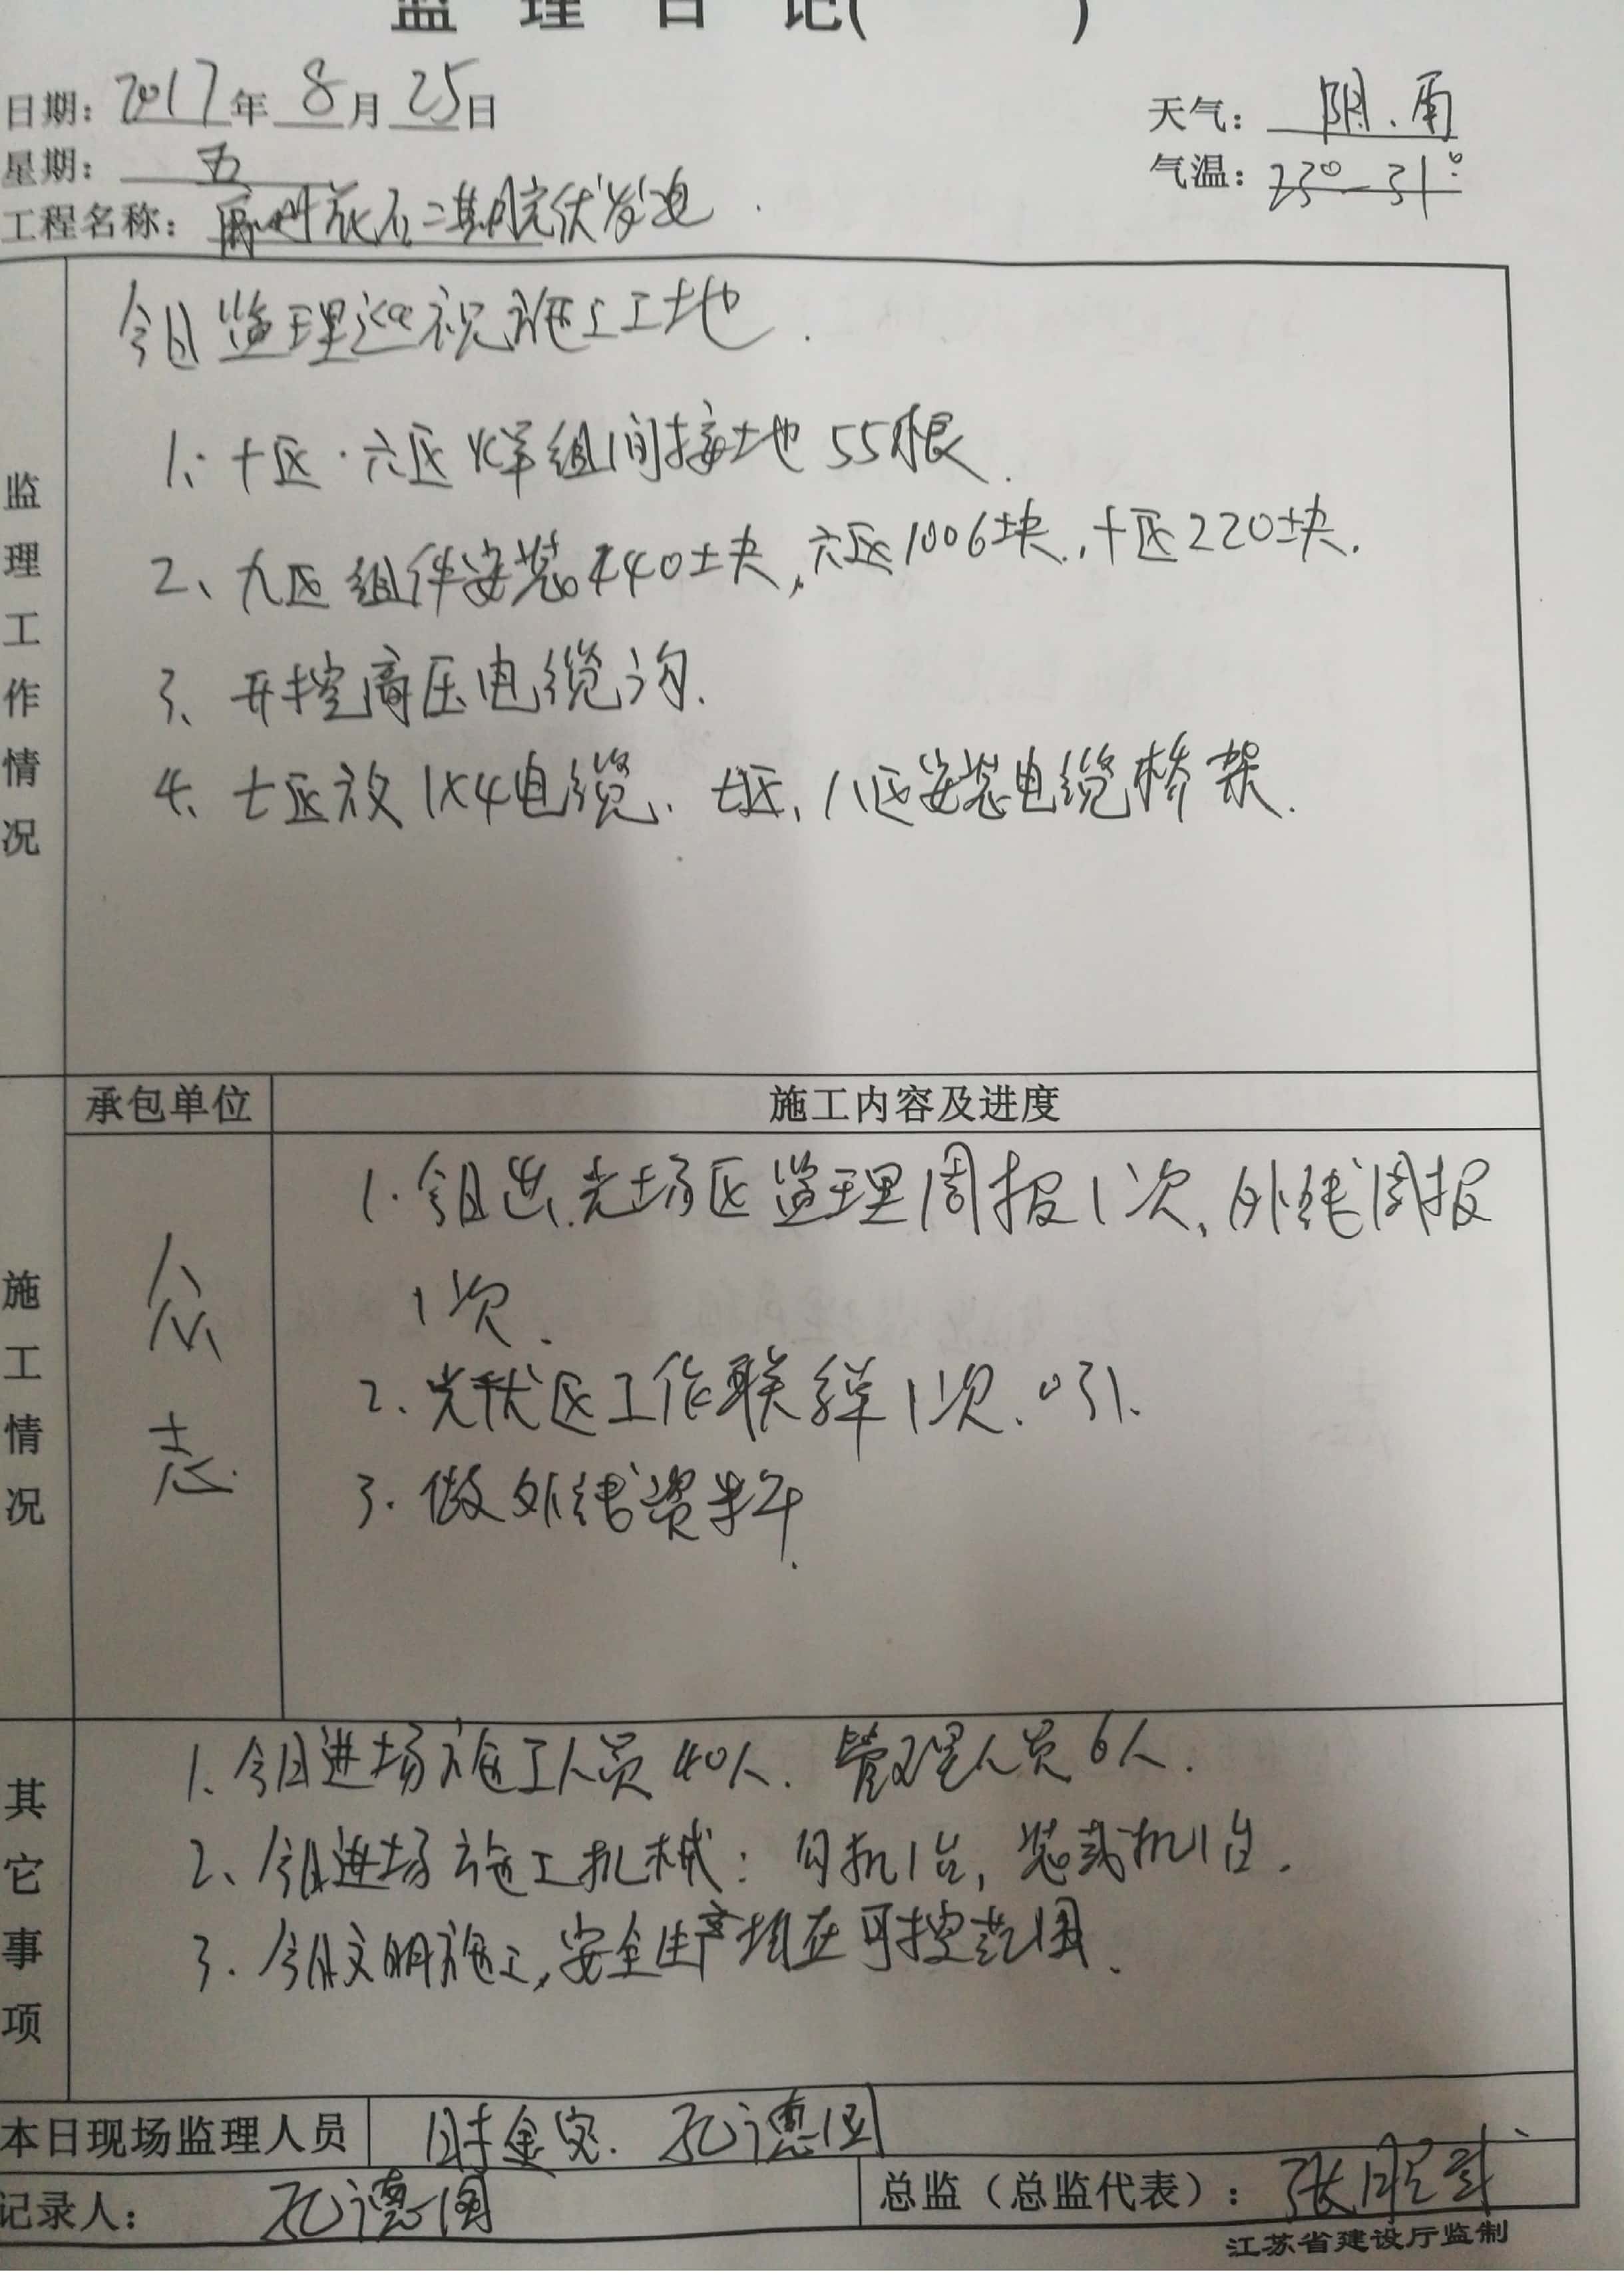 监理日记( )
日期：2017年 8月 25日
天气：阴、雨
星期：五
气温：23°—31°
工程名称：二期光伏发电
今日监理巡视施工工地.
监理工作情况
1、十区·六区焊组间接地55根.
2、九区组件安装440块，六区1006块.十区220块.
3、开挖高压电缆沟.
4、七区放1×4电缆、七区、八区安装电缆桥架.
承包单位 施工内容及进度
施工情况
众志
1.今日出光场区监理周报1次、外线周报
1次.
2.光伏区工作联络单1次、031.
3.做外线资料.
其它事项
1、今日进场施工人员40人.管理人员6人.
2、今日进场施工机械：勾机1台，装载机1台.
3.今日文明施工，安全生产均在可控范围.
本日现场监理人员 时金宝.孔德国
记录人：孔德国
总监（总监代表）：张
江苏省建设厅监制